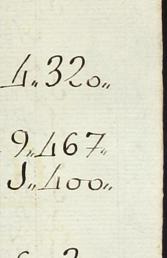 4,,320,,
9,,467,,
5,,400,,